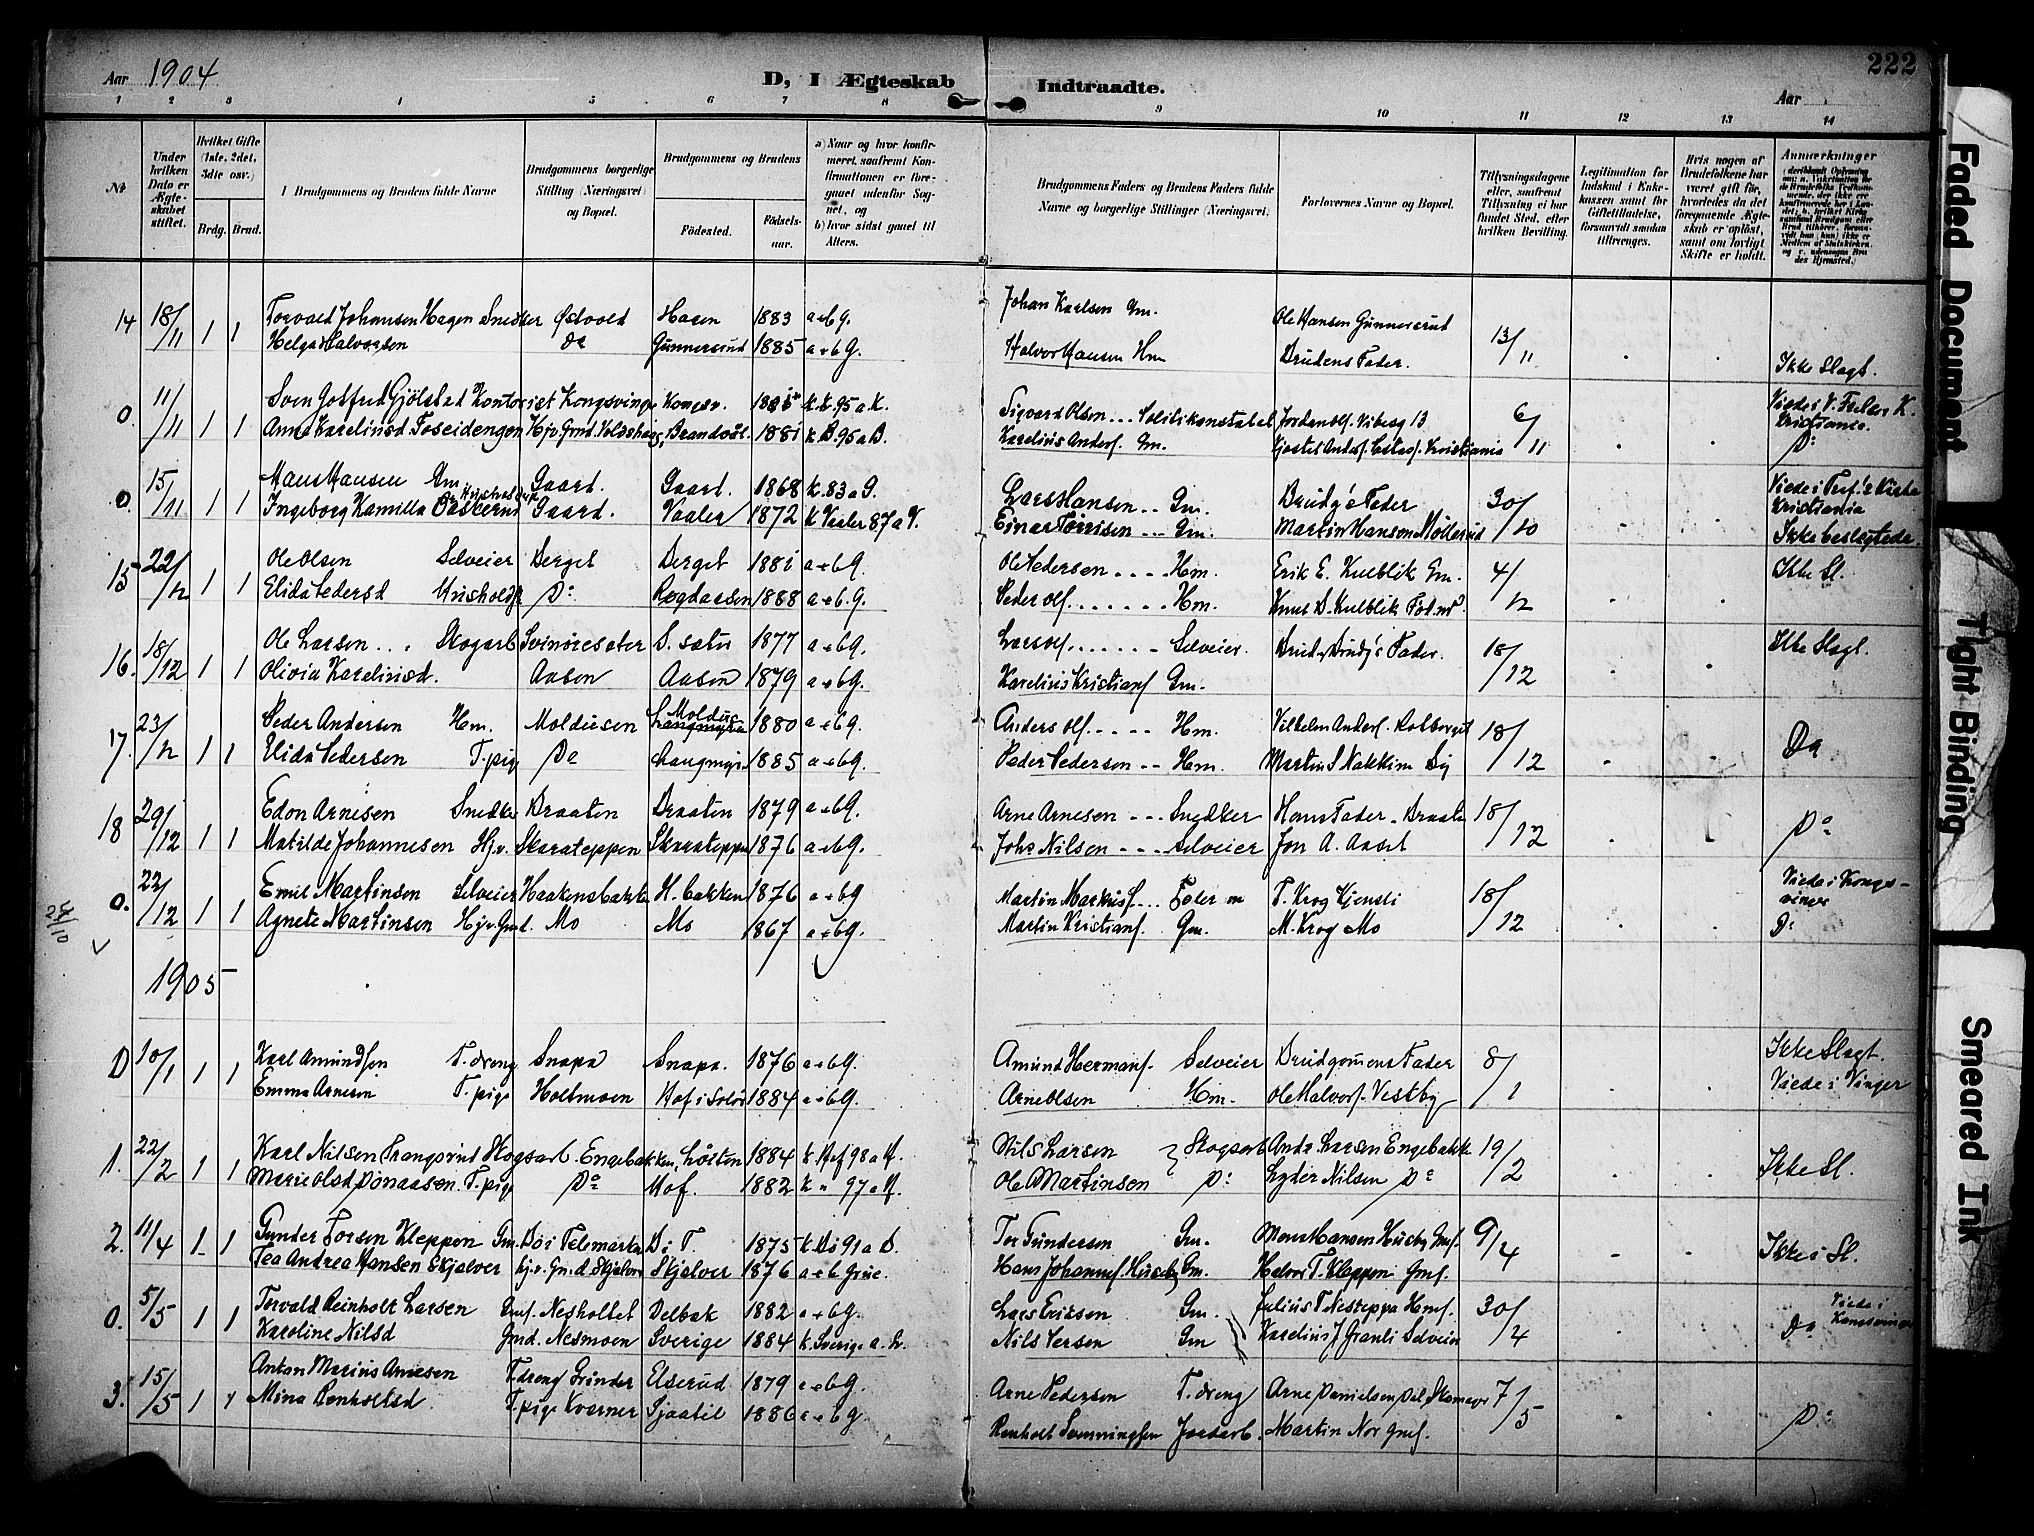 Aar 1904
D, I Ægteskab
Indtraadte.
Aar
222
1 2 3 4 5 6 7 8 9 10 11 12 13 14
No
Under hvilken Dato er Ægteskabet stiftet.
Hvilket Gifte (1ste, 2det, 3die osv.)
Brdg. Brud.
Brudgommens og Brudens fulde Navne
Brudgommens borgerlige Stilling (Næringsvei) og Bopæl.
Brudgommens og Brudens
Fødested. Fødselsaar.
a) Naar og hvor konfirmeret, saafremt Konfirmationen er foregaaet udenfor Sognet, og
b) hvor sidst gaaet til Alters.
Brudgommens Faders og Brudens Faders fulde Navne og borgerlige Stillinger (Næringsvei).
Forlovernes Navne og Bopæl.
Tillysningsdagene eller, saafremt Tillysning ei har fundet Sted, efter hvilken Bevilling.
Legitimation for Indskud i Enkekassen samt for Giftetilladelse, forsaavidt saadan tiltrænges.
Hvis nogen af Brudefolkene har været gift før, hvorledes da det foregaaende Ægteskab er opløst, samt om lovligt Skifte er holdt.
Anmærkninger
14 18/11 1 1 Torvald Johansen Hagen Snedker Østvold Hagen 1883 a+b G. Johan Karlsen Gm. Ole Hansen Gunnersrud 13/11
Helga Halvorsen Do Gunnersrud 1885 a+b G. Halvor Hansen Hm Brudens Fader. Ikke Slagt.
0. 11/11 1 1 Sven Gotfred Gjølstad Kontorist Kongsvinger Kongsv. K.K. 95 a K. Sigvard Olsen Politikonstabel 6/11 Viede i
Kristiania.
Brandvål. 1881 k B. 95 a B. Karelius Anders. Gm. Kristiania Do
0. 15/11 1 1 Hans Hansen Gm Gaard. Gaard. 1868 K. 83 a G. Lars Hansen Gm. Brudg's Fader 30/10 Viede i Kirke
Kristiania
Ingeborg Kamilla Gaard. Vaaler 1872 K Vaaler 87 a V. Einar Torrisen Gm. Martin Hanson Møllerud Ikke beslegtede.
15 22/12 1 1 Ole Olsen Selveier Berget Berget 1881 a+b G. Ole Pedersen Hm. Erik E. Kulblik Gm. 4/12 Ikke Sl.
Elida Pedersd Husholdr Do Rogdaasen 1888 a+b G. Peder Ols. Hm. Knut Kulblik
16. 18/12 1 1 Ole Larsen Skogarb Svenøresæter S. sætr 1877 a+b G. Lars Ols. Selveier. Fader. 18/12 Ikke Slagt.
Olivia Kareliusd. Aasen Aasen 1879 a+b G. Karelius Kristians. Gm.
17. 23/12 1 1 Peder Andersen Hm. Moldusen Moldus 1880 a+b G. Anders Ols. Hm. Vilhelm Anders. Rotberget 18/12 Do
Elida Pedersen T. pig Do Langmyr. 1885 a+b G. Peder Pedersen Hm. Martin
18 29/12 1 1 Edon Arnesen Snedke Braaten Braaten 1879 a+b G. Arne Arnesen Snedker Hans Fader. Braaten 18/12 Do
Matilde Johannesen Hjv. Skarateppen Skarateppen 1876 a+b G. Johs Nilsen Selveier Jon A. Aaset
0. 22/12 1 1 Emil Martinsen Selveier Haakensbakke H. bakken 1876 a+b G Martin Markus. T. Krog Kjensli 18/12 Viede i Kongsvinger
Agnete Martinsen Hjv. Gmd. Mo Mo 1867 a+b G. Martin Kristians. Gm. M. Krog Mo Do
24/10
1905
0 10/1 1 1 Karl Amundsen T. dreng Snapa Snapa. 1876 a+b G. Amund Hermans. Selveier Brudgomens Fader 8/1 Ikke Slagt.
Emma Arnesen T. pige Holtmoen Hof i Solør 1884 a+b G. Arne Olsen Hm. Ole Halvors. Vestby Viede i Vinger
1. 22/2 1 1 Karl Nilsen Trangsrud Skogsarb. Engebakken, Løiten 1884 k. Hof 98 a H. Nils Larsen Skogsarb Andr. Larsen Engebakke 19/2 Ikke Sl.
Marie Olsd Donaasen. T. pige Do Hof. 1882 K " 97 a H. Ole Martinsen Do Lyder Nilsen Do
2. 11/4 1 1 Gunder Torsen Kleppen Gm. Bøi Telemarken Bøi T. 1875 k. Bøi 91 a B. Tor Gundersen Gm. Mons Hansen Husby Gms. 9/4 Ikke i Sl.
Tea Andrea Hansen Skjalver Hjv. Gm.d. Skjalver Skjalver 1876 a+b Grue. Hans Johannes. Husby Gm. Halvor T. Kleppen Gms.
0. 5/5 1 1 Torvald Reinholt Larsen Gms. Nesholtet Delbak 1882 a+b G. Lars Eriksen Gm. Julius T. Nesteppa Hms. 30/4 Do Viede i Kongsvinger
Karoline Nilsd Gmd. Nesmoen Sverige 1884 k. Sverige a. Nils Persen Gm Karelius J Granli Selveier
3. 15/5 1 1 Anton Marius Arnesen T. dreng Grinder Elserud 1879 a+b G. Arne Pedersen T. dreng Arne Danielsen 7/5 Do
Mina Renholtsd T. pige Kværner Sjaatil 1886 a+b G. Renholt Jordarb. Martin Nor Gms.
Faded Document
Tight Binding
Smeared Ink